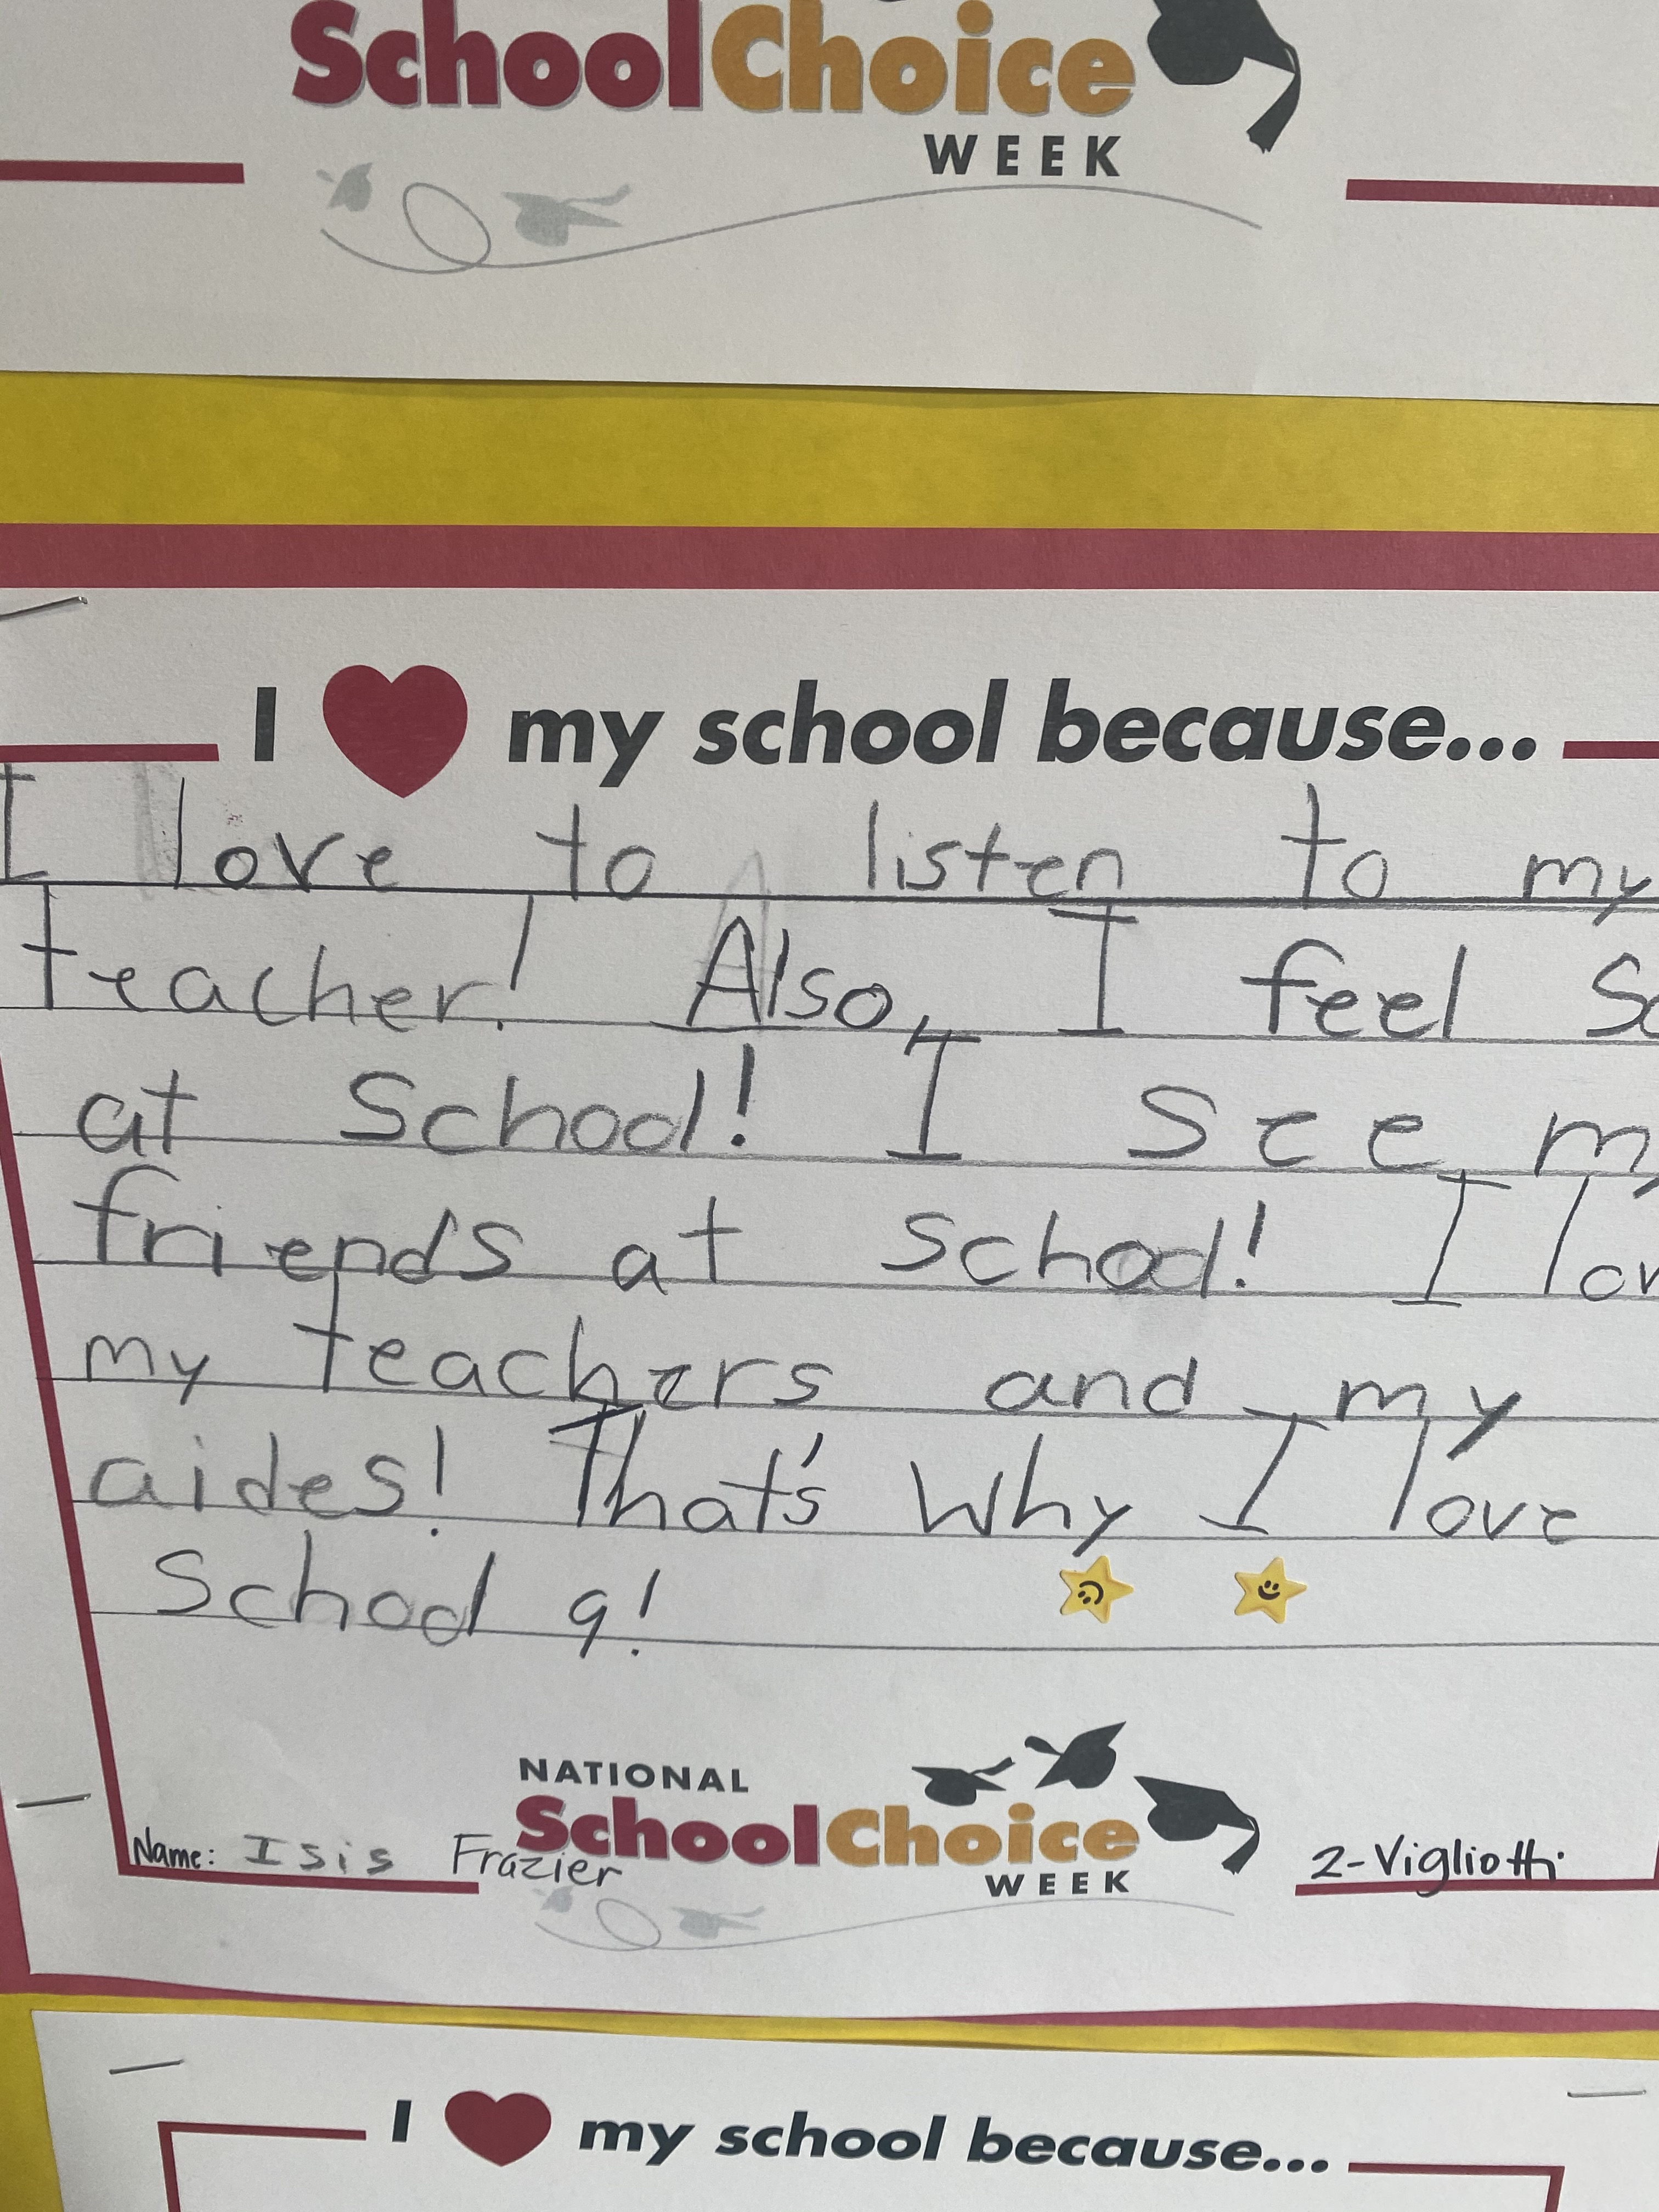 SchoolChoice
WEEK
I my school because...
I love to listen to my
teacher! Also, I feel
at School! I see
friends at school! I
my teachers and my
aides! That's why I love
School 9!
NATIONAL
SchoolChoice
WEEK
Name: Isis Frazier
2-Vigliotti
I my school because...